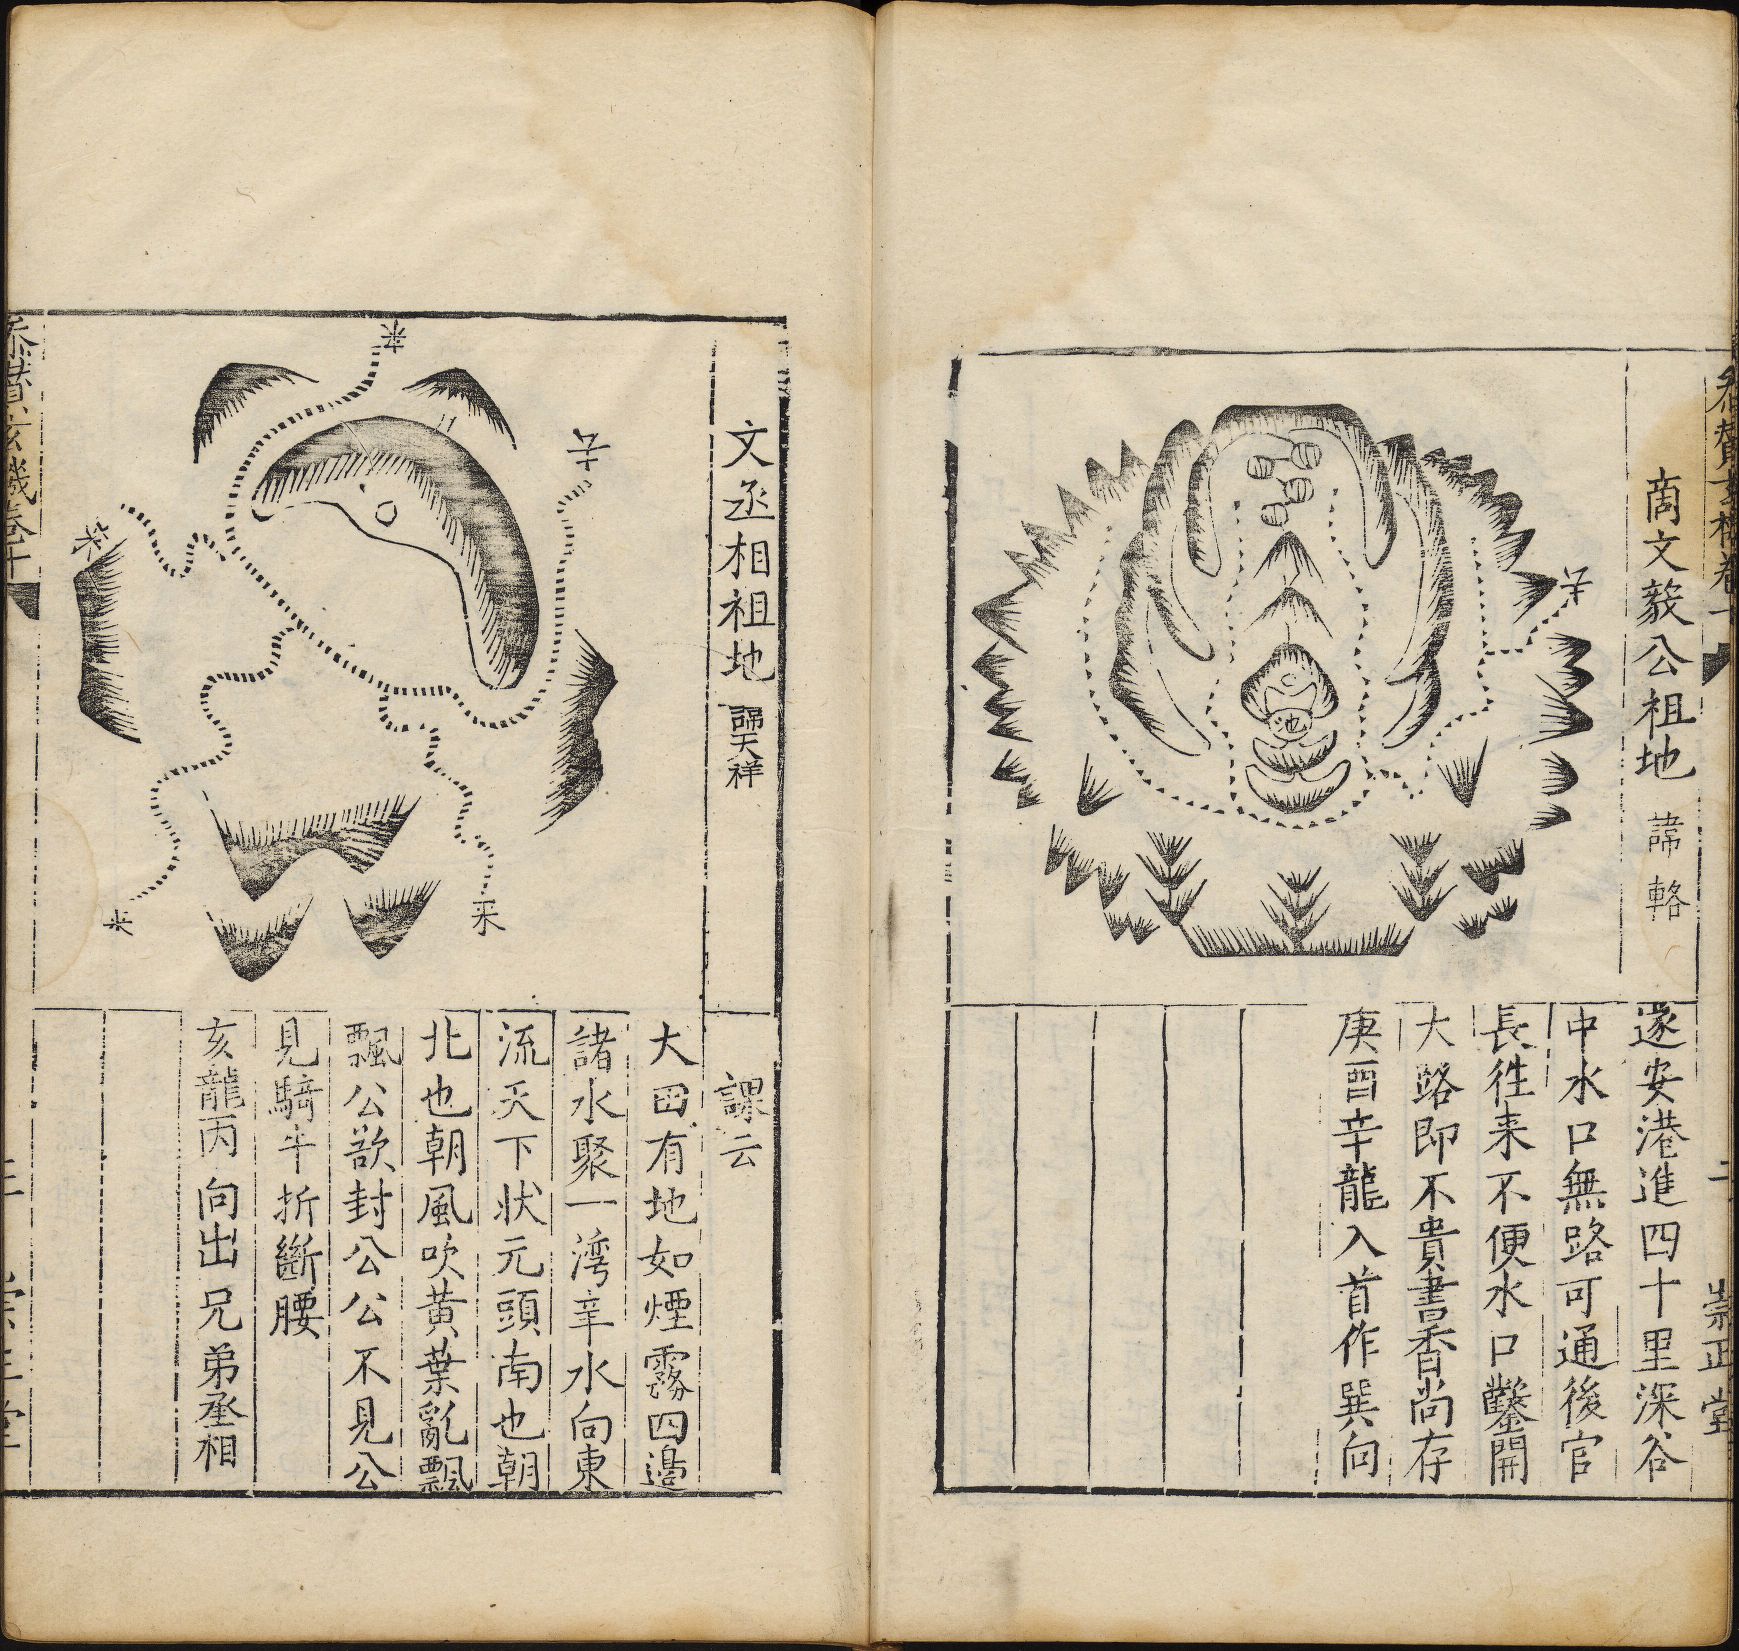 商文毅公祖地 諱輅
水
池
遂安港進四十里深谷
中水口無路可通後官
長徃来不便水口鑿開
大路即不貴書香尚存
庚酉辛龍入首作巽向
崇正堂
文丞相祖地 諱天祥
水
水
水
水
課云
大岡有地如煙霧四邉
諸水聚一湾辛水向東
流天下状元頭南也朝
北也朝風吹黃葉亂飄
飄公欲封公公不見公
見騎牛折斷腰
亥龍丙向出兄弟丞相